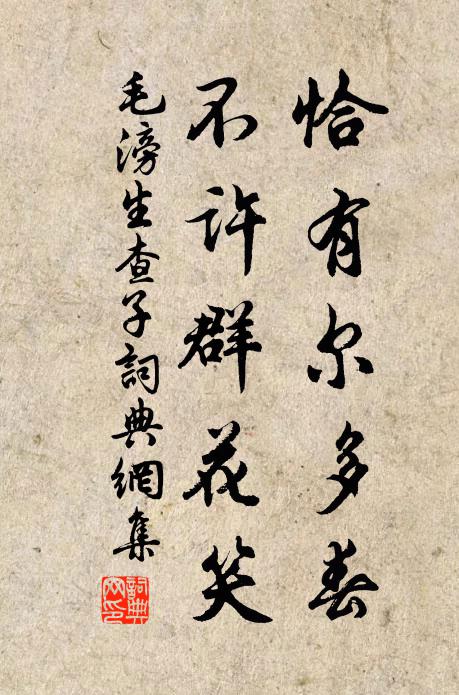 恰有尔多春
不许群花笑
毛滂生查子詞典網集
詞典網印